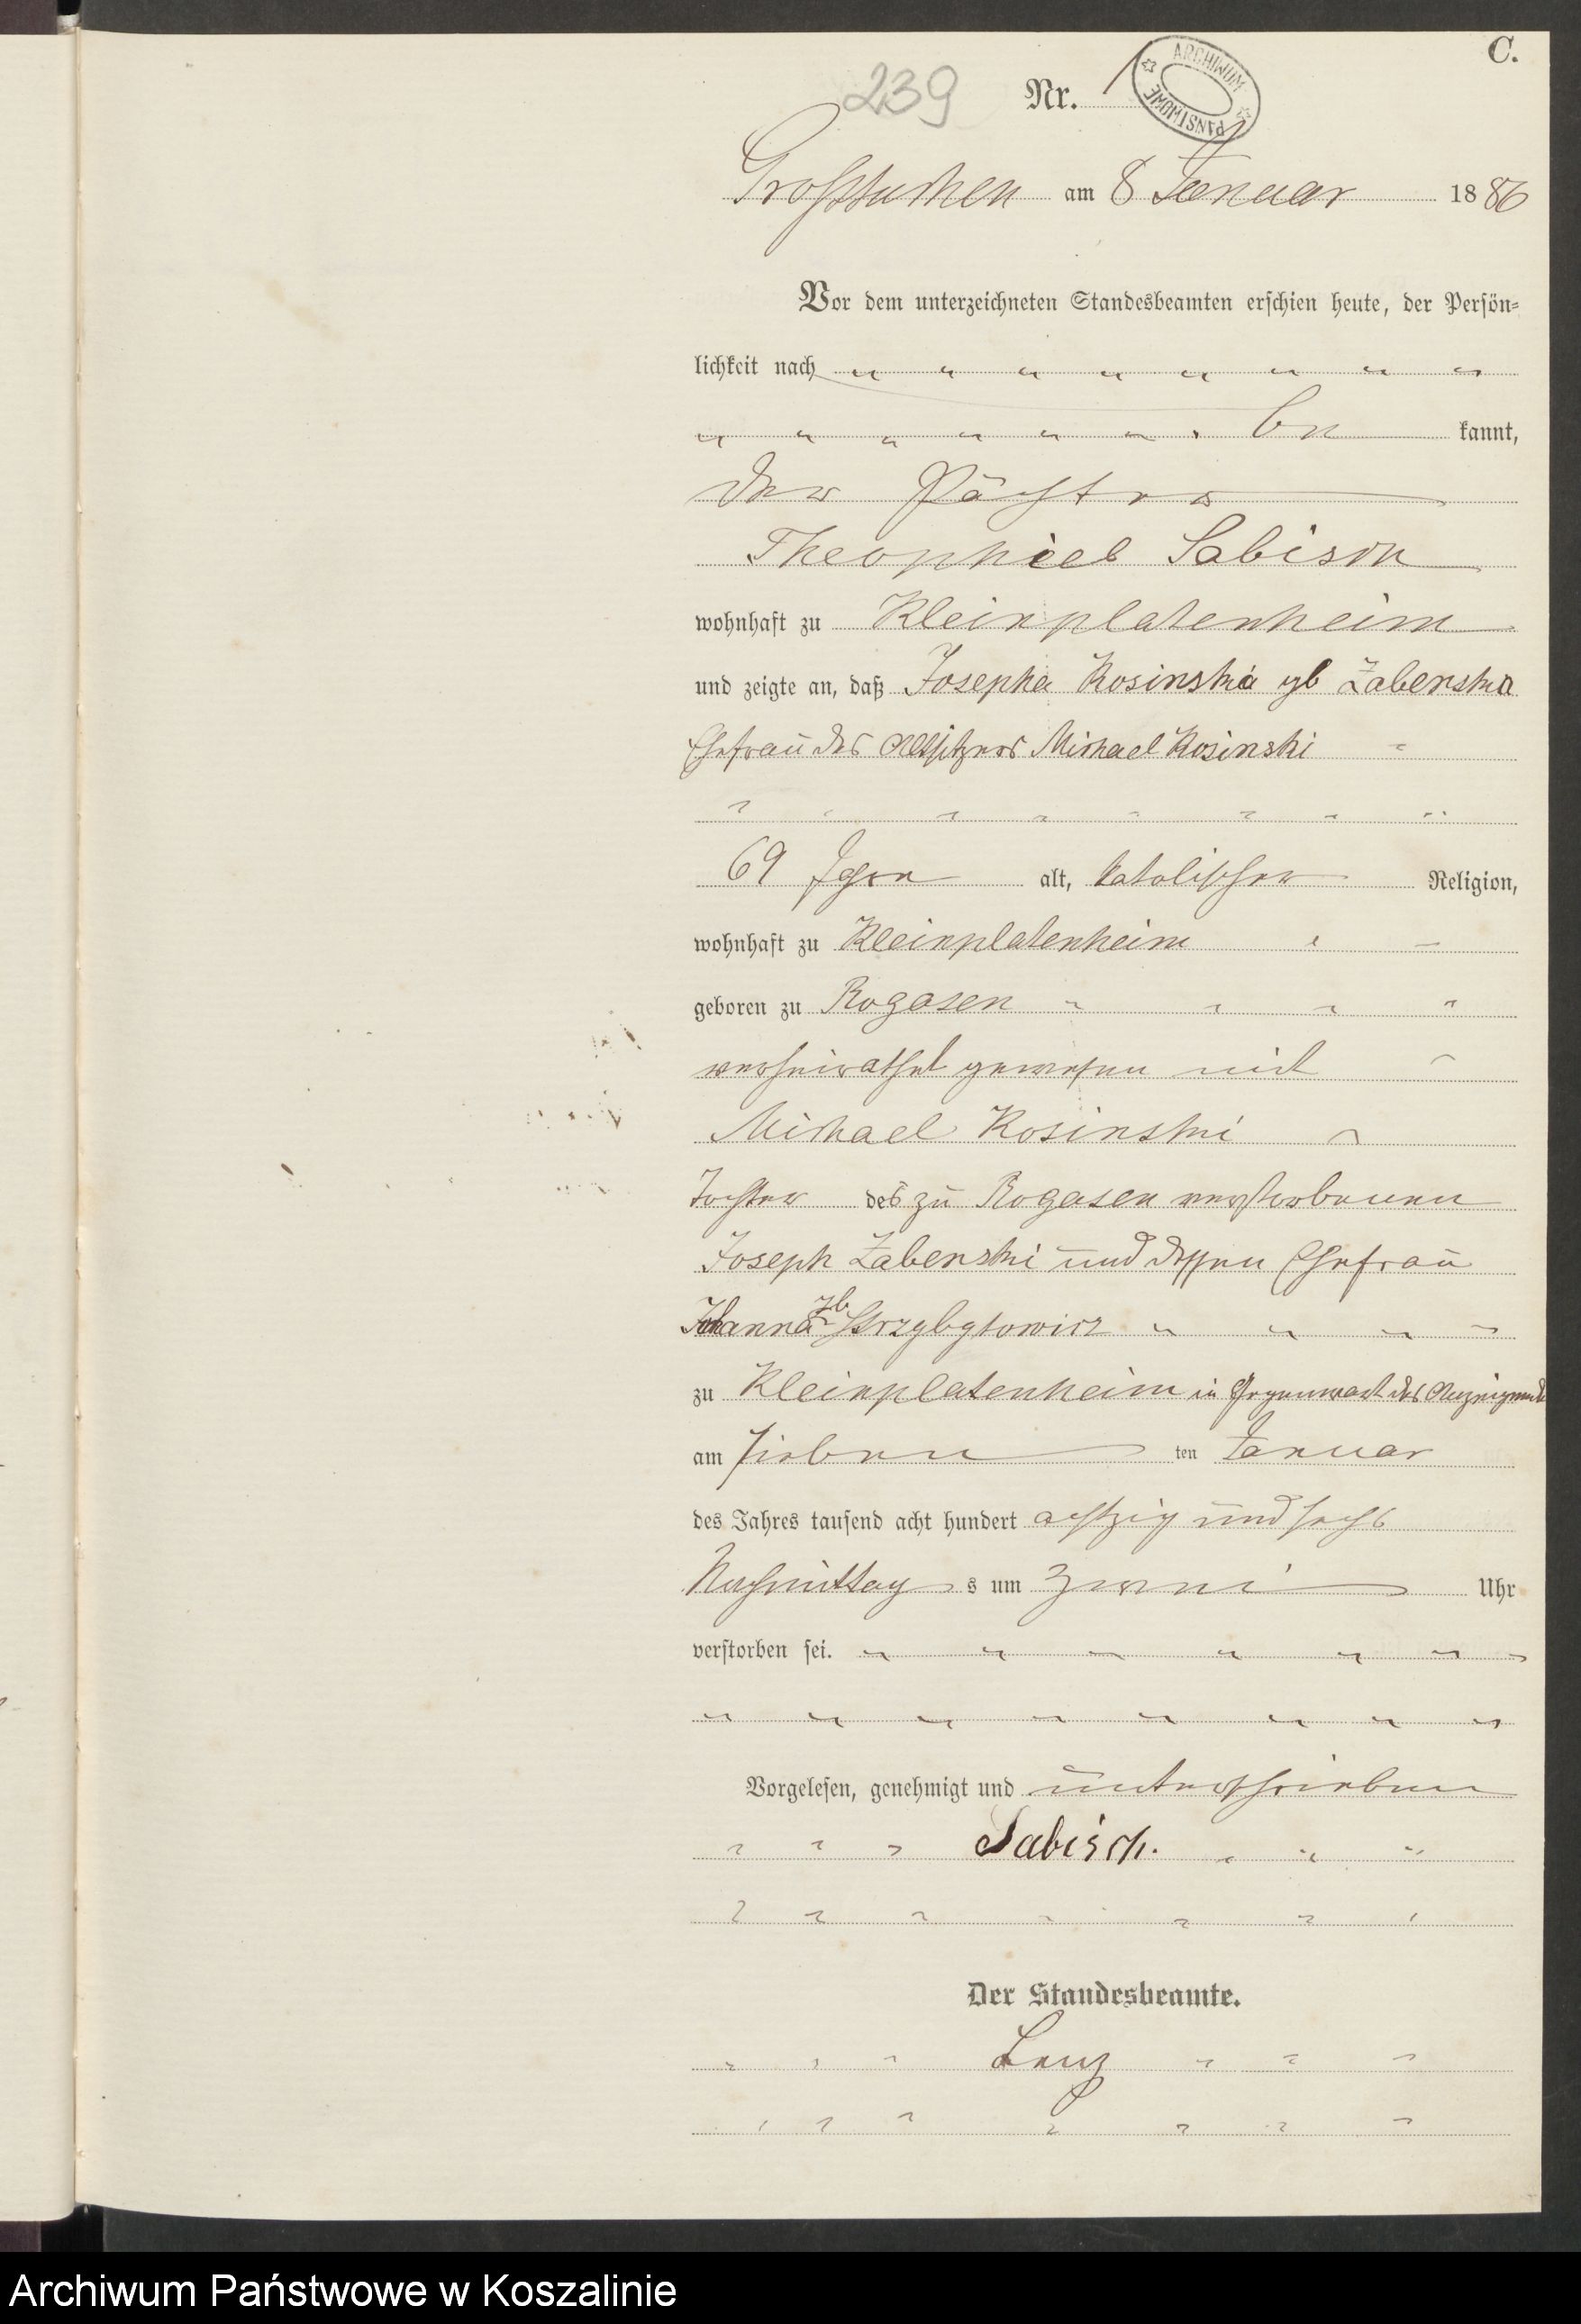 C.
239 Nr. 1
ARCHIWUM PAŃSTWOWE
Großtuchen am 8 Januar 1886
Vor dem unterzeichneten Standesbeamten erschien heute, der Persön-
lichkeit nach
be kannt,
der Pächter
Theophiel Sabisch
wohnhaft zu Kleinplatenheim
und zeigte an, daß Josepha Kosinska gb Zaberska
Ehefrau des Altsitzers Michael Kosinski
69 Jahre alt, katolischer Religion,
wohnhaft zu Kleinplatenheim
geboren zu Rogasen
verheirathet gewesen mit
Michael Kosinski
Tochter des zu Rogasen verstorbenen
Joseph Zaberski und dessen Ehefrau
Johanna gb
zu Kleinplatenheim in Gegenwart des Anzeigenden
am sieben ten Januar
des Jahres tausend acht hundert achtzig und sechs
Nachmittag s um zwei Uhr
verstorben sei.
Vorgelesen, genehmigt und unterschrieben
Sabisch.
Der Standesbeamte.
Lenz
Archiwum Państwowe w Koszalinie